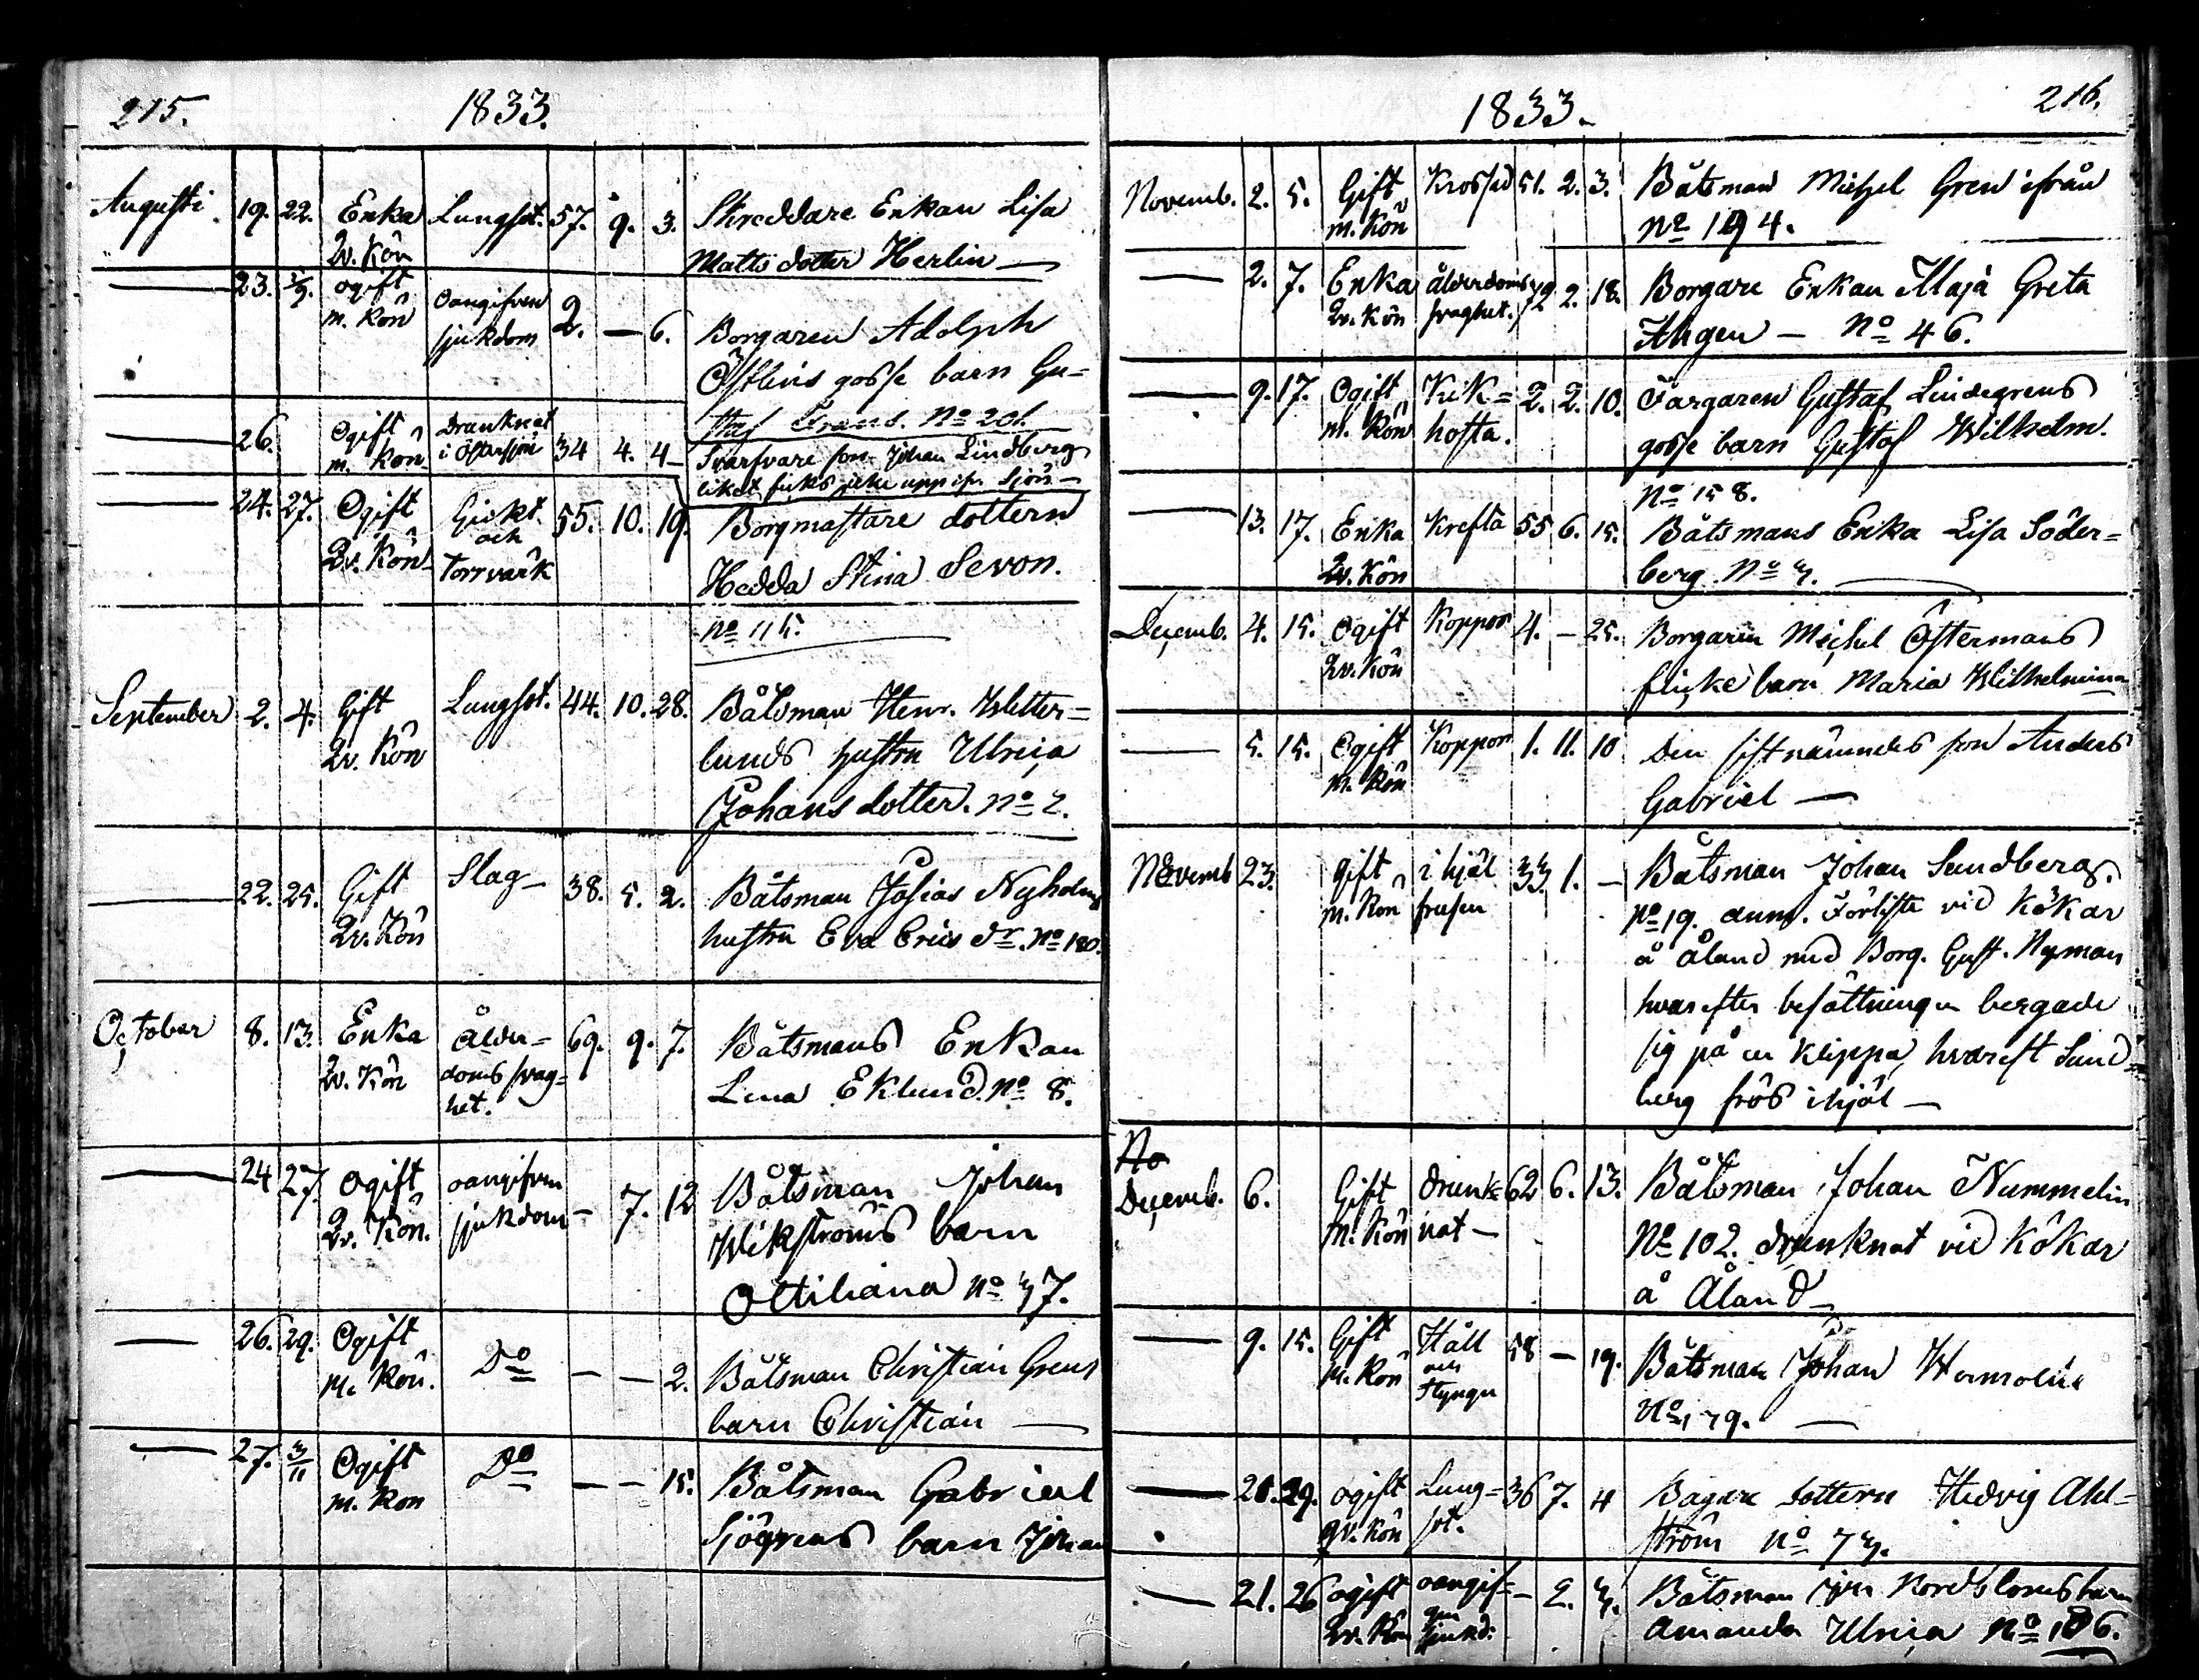 215. 1833.
Augusti. 19. 22. Enka Lungsot. 57. 9. 3. Skreddare Enkan Lisa
Qv. Kön Matts dotter Herlin —
— 23. 1/9. ogift oangifven 2. — 6. Borgaren Adolph
m. kön sjukdom Östlins gosse barn Gu=
staf Frans. No 201.
— 26. Ogift Drunknat 34 4. 4 Svarfvare son Johan Lindberg
m. kön i Östersjön liket ficks icke upp ifr. Sjön —
— 24. 27. Ogift Gickt 55. 10. 19. Borgmästare dottern
Qv. Kön och Hedda Stina Sevon.
Torrvärk No 115.
September 2. 4. Gift Lungsot. 44. 10. 28. Båtsman Henr. Wetter=
Qv. Kön lunds hustru Ulrica
Johans dotter. No 2.
— 22. 25. Gift Slag — 38. 5. 2. Båtsman Josias Nyholms
Qv. Kön hustru Eva Erics dr. No 180.
October 8. 13. Enka Ålder= 69. 9. 7. Båtsmans Enkan
Qv. Kön doms svag= Lena Eklund. No 8.
het.
— 24 27. Ogift oangifven — 7. 12 Båtsman Johan
Qv. Kön. sjukdom Wikströms barn
Ottiliana No 37.
— 26. 29. Ogift Do — — 2. Båtsman Christian Grens
m. Kön. barn Christian —
— 27. 3/11 Ogift Do — — 15. Båtsman Gabriel
m. Kön Sjögrens barn Johan
1833. 216.
Novemb. 2. 5. Gift Krossad 51. 2. 3. Båtsman Michel Gren ifrån
m. Kön No 194.
— 2. 7. Enka ålderdoms 72 2. 18. Borgare Enkan Maja Greta
Qv. Kön svaghet. — No 46.
— 9. 17. Ogift Kik= 2. 2. 10. Färgaren Gustaf Lindegrens
m. Kön hosta. gosse barn Gustaf Wilhelm.
No 158.
— 13. 17. Enka Krefta 55 6. 15. Båtsmans Enka Lisa Söder=
Qv. Kön berg. No 3.
Decemb. 4. 15. Ogift Koppor 4. — 25. Borgaren Michel Östermans
Qv. Kön flicke barn Maria Wilhelmina
— 5. 15. Ogift Koppor 1. 11. 10 Den sistnämndes son Anders
m. Kön Gabriel —
Novemb 23. gift i hjäl 33 1. — Båtsman Johan Sundberg.
m. Kön frusen No 19. anm. Förliste vid Kökar
å Åland med Borg. Gust. Nyman
hvarefter besättningen bergade
sig på en klippa, hvareft Sund=
berg frös ihjäl —
No
Decemb. 6. Gift drunk= 62 6. 13. Båtsman Johan Nummelin
m. Kön nat — No 102. drunknat vid Kökar
å Åland —
— 9. 15. Gift Håll 58 — 19. Båtsman Johan
m. Kön och No 179. —
Styngn
— 21. 29. ogift Lung= 36 7. 4 Bagare dottern Hedvig Ahl=
qv. Kön sot. ström No 73.
— 21. 26 ogift oangif= — 2. 3. Båtsman Joh Nordbloms barn
Qv. Kön sjukd: Amanda Ulrica No 186.